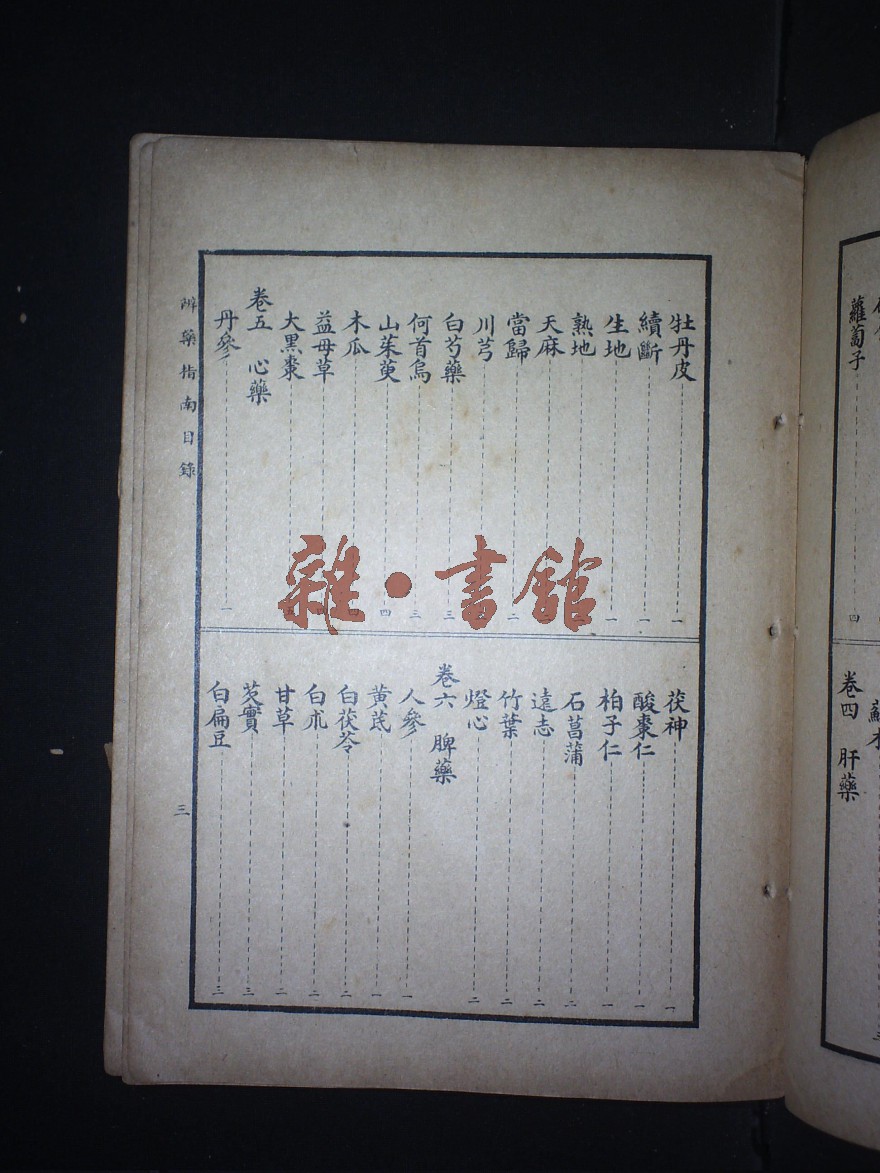 蘿蔔子 四
卷四 肝藥
牡丹皮 一
續斷 一
生地 一
熟地
天麻
當歸 二
川芎
白芍藥 三
何首烏 三
山茱萸 四
木瓜
益母草
大黑棗
卷五 心藥
丹參 一
茯神 一
酸棗仁 一
柏子仁 一
石菖蒲 二
遠志 二
竹葉 二
燈心 二
卷六 脾藥
人參 一
黃茋 一
白茯苓 二
白朮 二
甘草 二
芡實 三
白扁豆 三
辨藥指南目錄 三
雜·書館